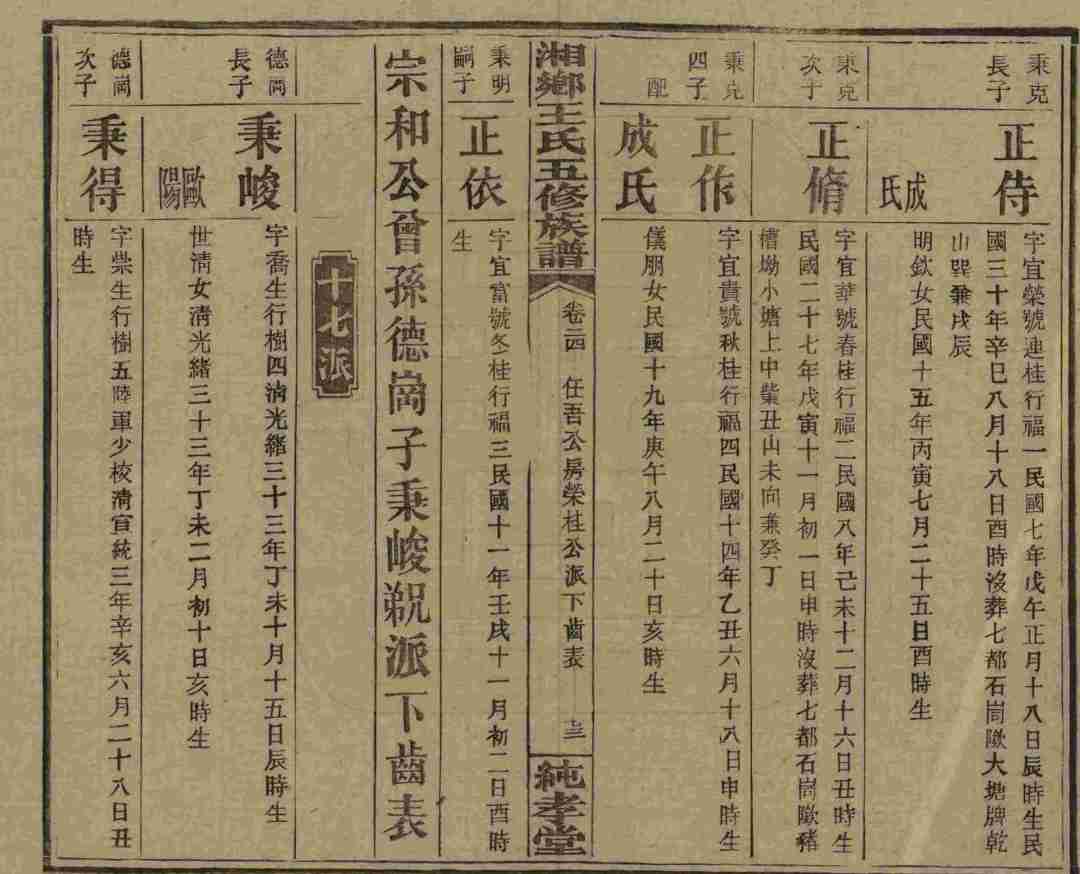 秉克長子
正侍
字宜榮號連桂行福一民國七年戊午正月十八日辰時生民
國三十年辛巳八月十八日酉時沒葬七都石崗歐大塘牌乾
山巽兼戌辰
成氏
明欽女民國十五年丙寅七月二十五日酉時生
秉克次子
正脩
字宜華號春桂行福二民國八年己未十二月十六日丑時生
民國二十七年戊寅十一月初一日申時沒葬七都石崗歐豬
槽坳小塘上中嘴丑山未向兼癸丁
秉克四子
正作
字宜貴號秋桂行福四民國十四年乙丑六月十八日申時生
配
成氏
儀朋女民國十九年庚午八月二十日亥時生
湘鄉王氏五修族譜
卷二四 任吾公房榮桂公派下齒表
純孝堂
秉明嗣子
正依
字宜富號冬桂行福三民國十一年壬戌十一月初二日酉時
生
宗和公曾孫德崗子秉峻𥙿派下齒表
十七派
德崗長子
秉峻
字喬生行樹四清光緒三十三年丁未十月十五日辰時生
歐陽
世清女清光緒三十三年丁未二月初十日亥時生
德崗次子
秉得
字柴生行樹五陸軍少校清宣統三年辛亥六月二十八日丑
時生